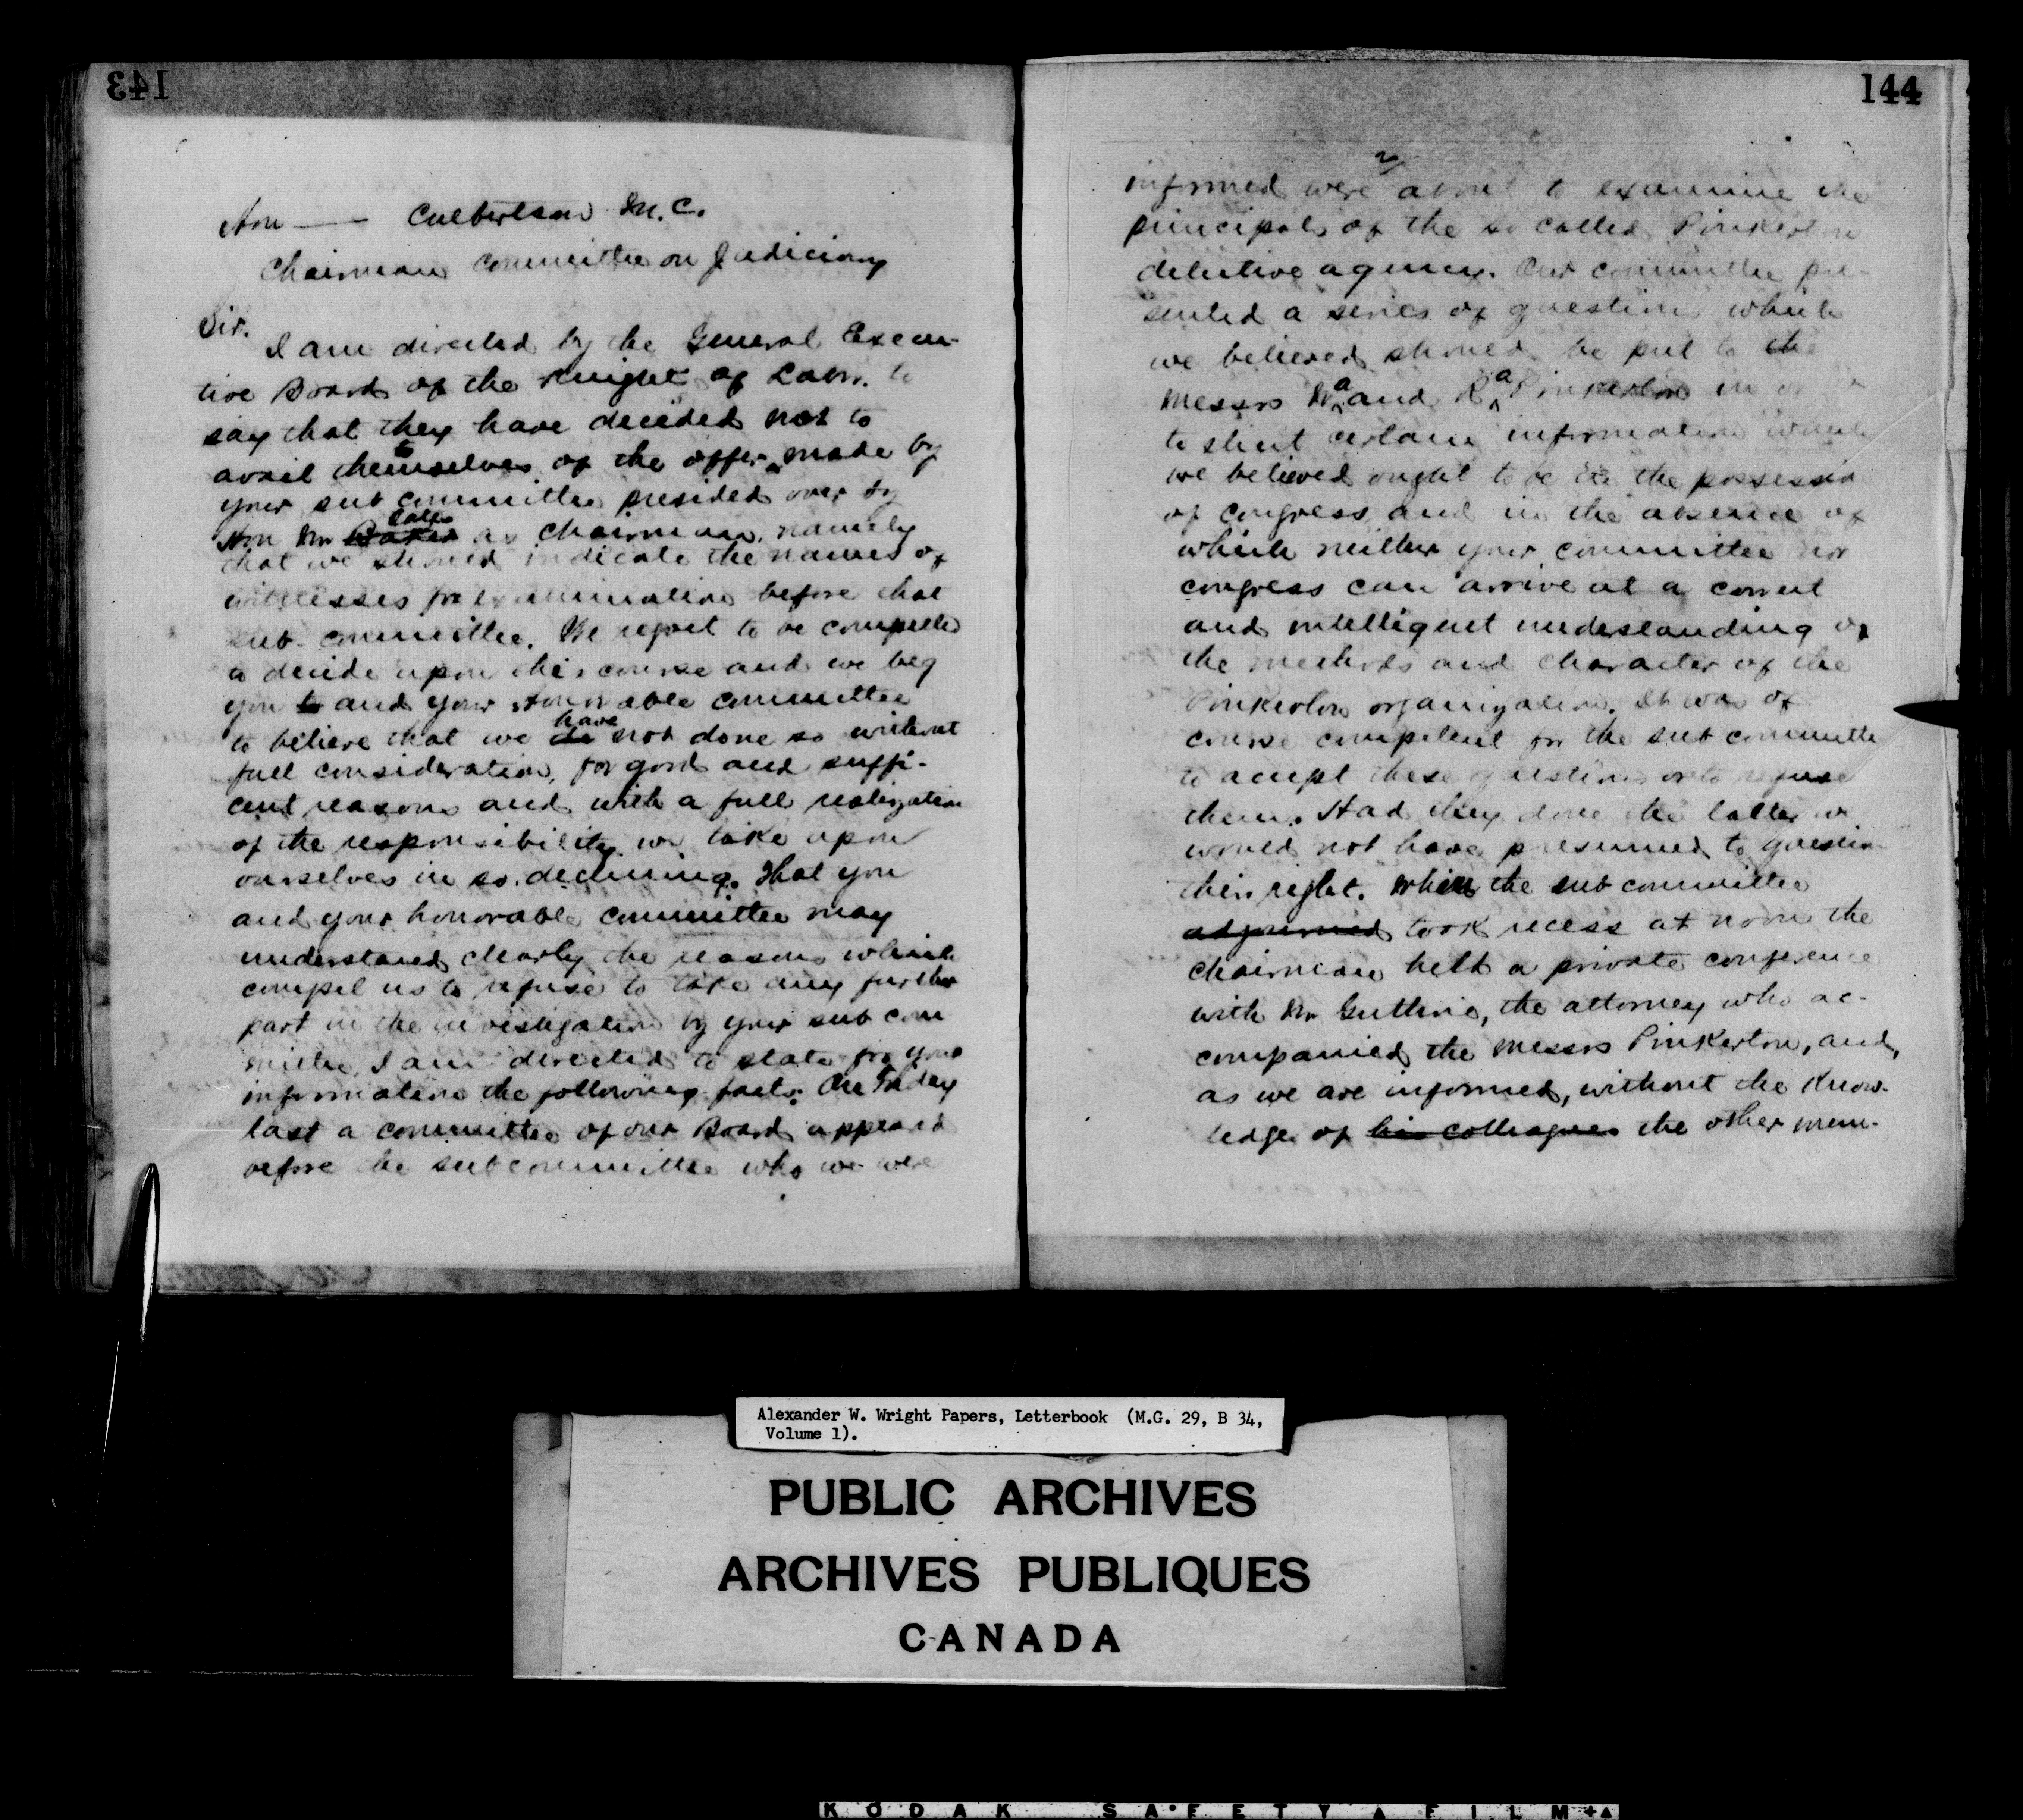 143
Hon —— Culbertson M.C.
Chairman Committee on Judiciary
Sir.
I am directed by the General Execu-
tive Board of the Knights of Labor. to
say that they have decided not to
avail themselves of the offer made by
to
your sub committee presided over by
Hon Mr Oates as Chairman, namely
that we should indicate the names of
witnesses for examination before that
sub-committee. We regret to be compelled
to decide upon this course and we beg
you to and your Honorable committee
to believe that we do have not done so without
full consideration, for good and suffi-
cent reasons and with a full realization
of the responsibility we take upon
ourselves in so declining. That you
and your honorable committee may
understand clearly the reasons which
compel us to refuse to take any further
part in the investigation by your sub com
mittee, I am directed to state for your
information the following facts: On Friday
last a committee of our Board appeared
before the subcommittee who we were
144
2/
informed were about to examine the
principals of the so called Pinkerton
detective agency. Our committee pre-
sented a series of questions which
we believed should be put to the
Messrs W a and R a Pinkerton in order
to elicit certain information which
we believed ought to be in the possession
of congress and in the absence of
which neither your committee nor
congress can arrive at a correct
and intelligent understanding of
the methods and character of the
Pinkerton organization. It was of
course competent for the sub committee
to accept these questions or to refuse
them. Had they done the latter we
would not have presumed to question
their right. When the sub committee
adjourned took recess at noon the
chairman held a private conference
with Mr Guthrie, the attorney who ac-
companied the Messrs Pinkerton, and,
as we are informed, without the know-
ledge of his colleagues the other mem-
Alexander W. Wright Papers, Letterbook (M.G. 29, B 34,
Volume 1).
PUBLIC ARCHIVES
ARCHIVES PUBLIQUES
CANADA
KODAK SAFETY FILM